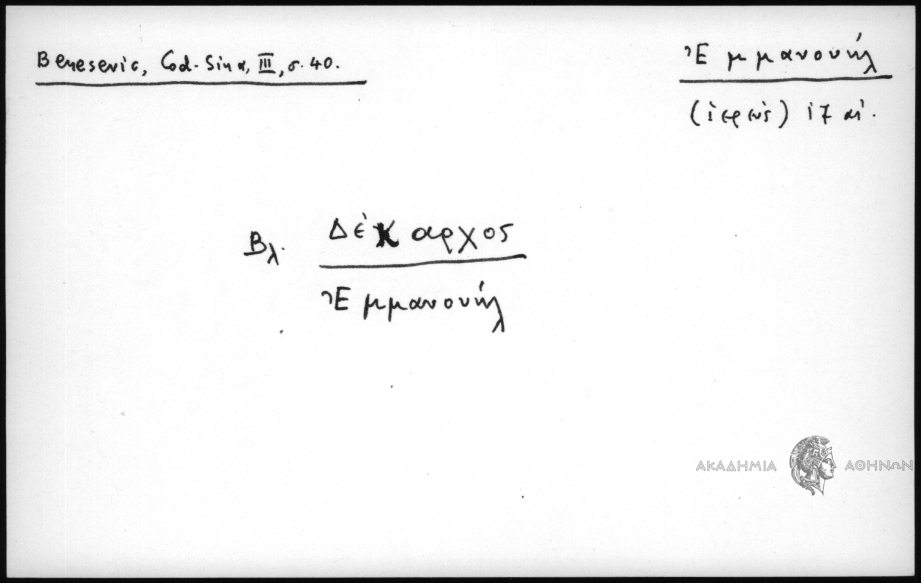 Benesevic, Cod. Sina, III, σ. 40.
Ἐμμανουήλ
(ἱερεὺς) 17 αἰ.
Βλ. Δέκαρχος
Ἐμμανουήλ
ΑΚΑΔΗΜΙΑ ΑΘΗΝΩΝ